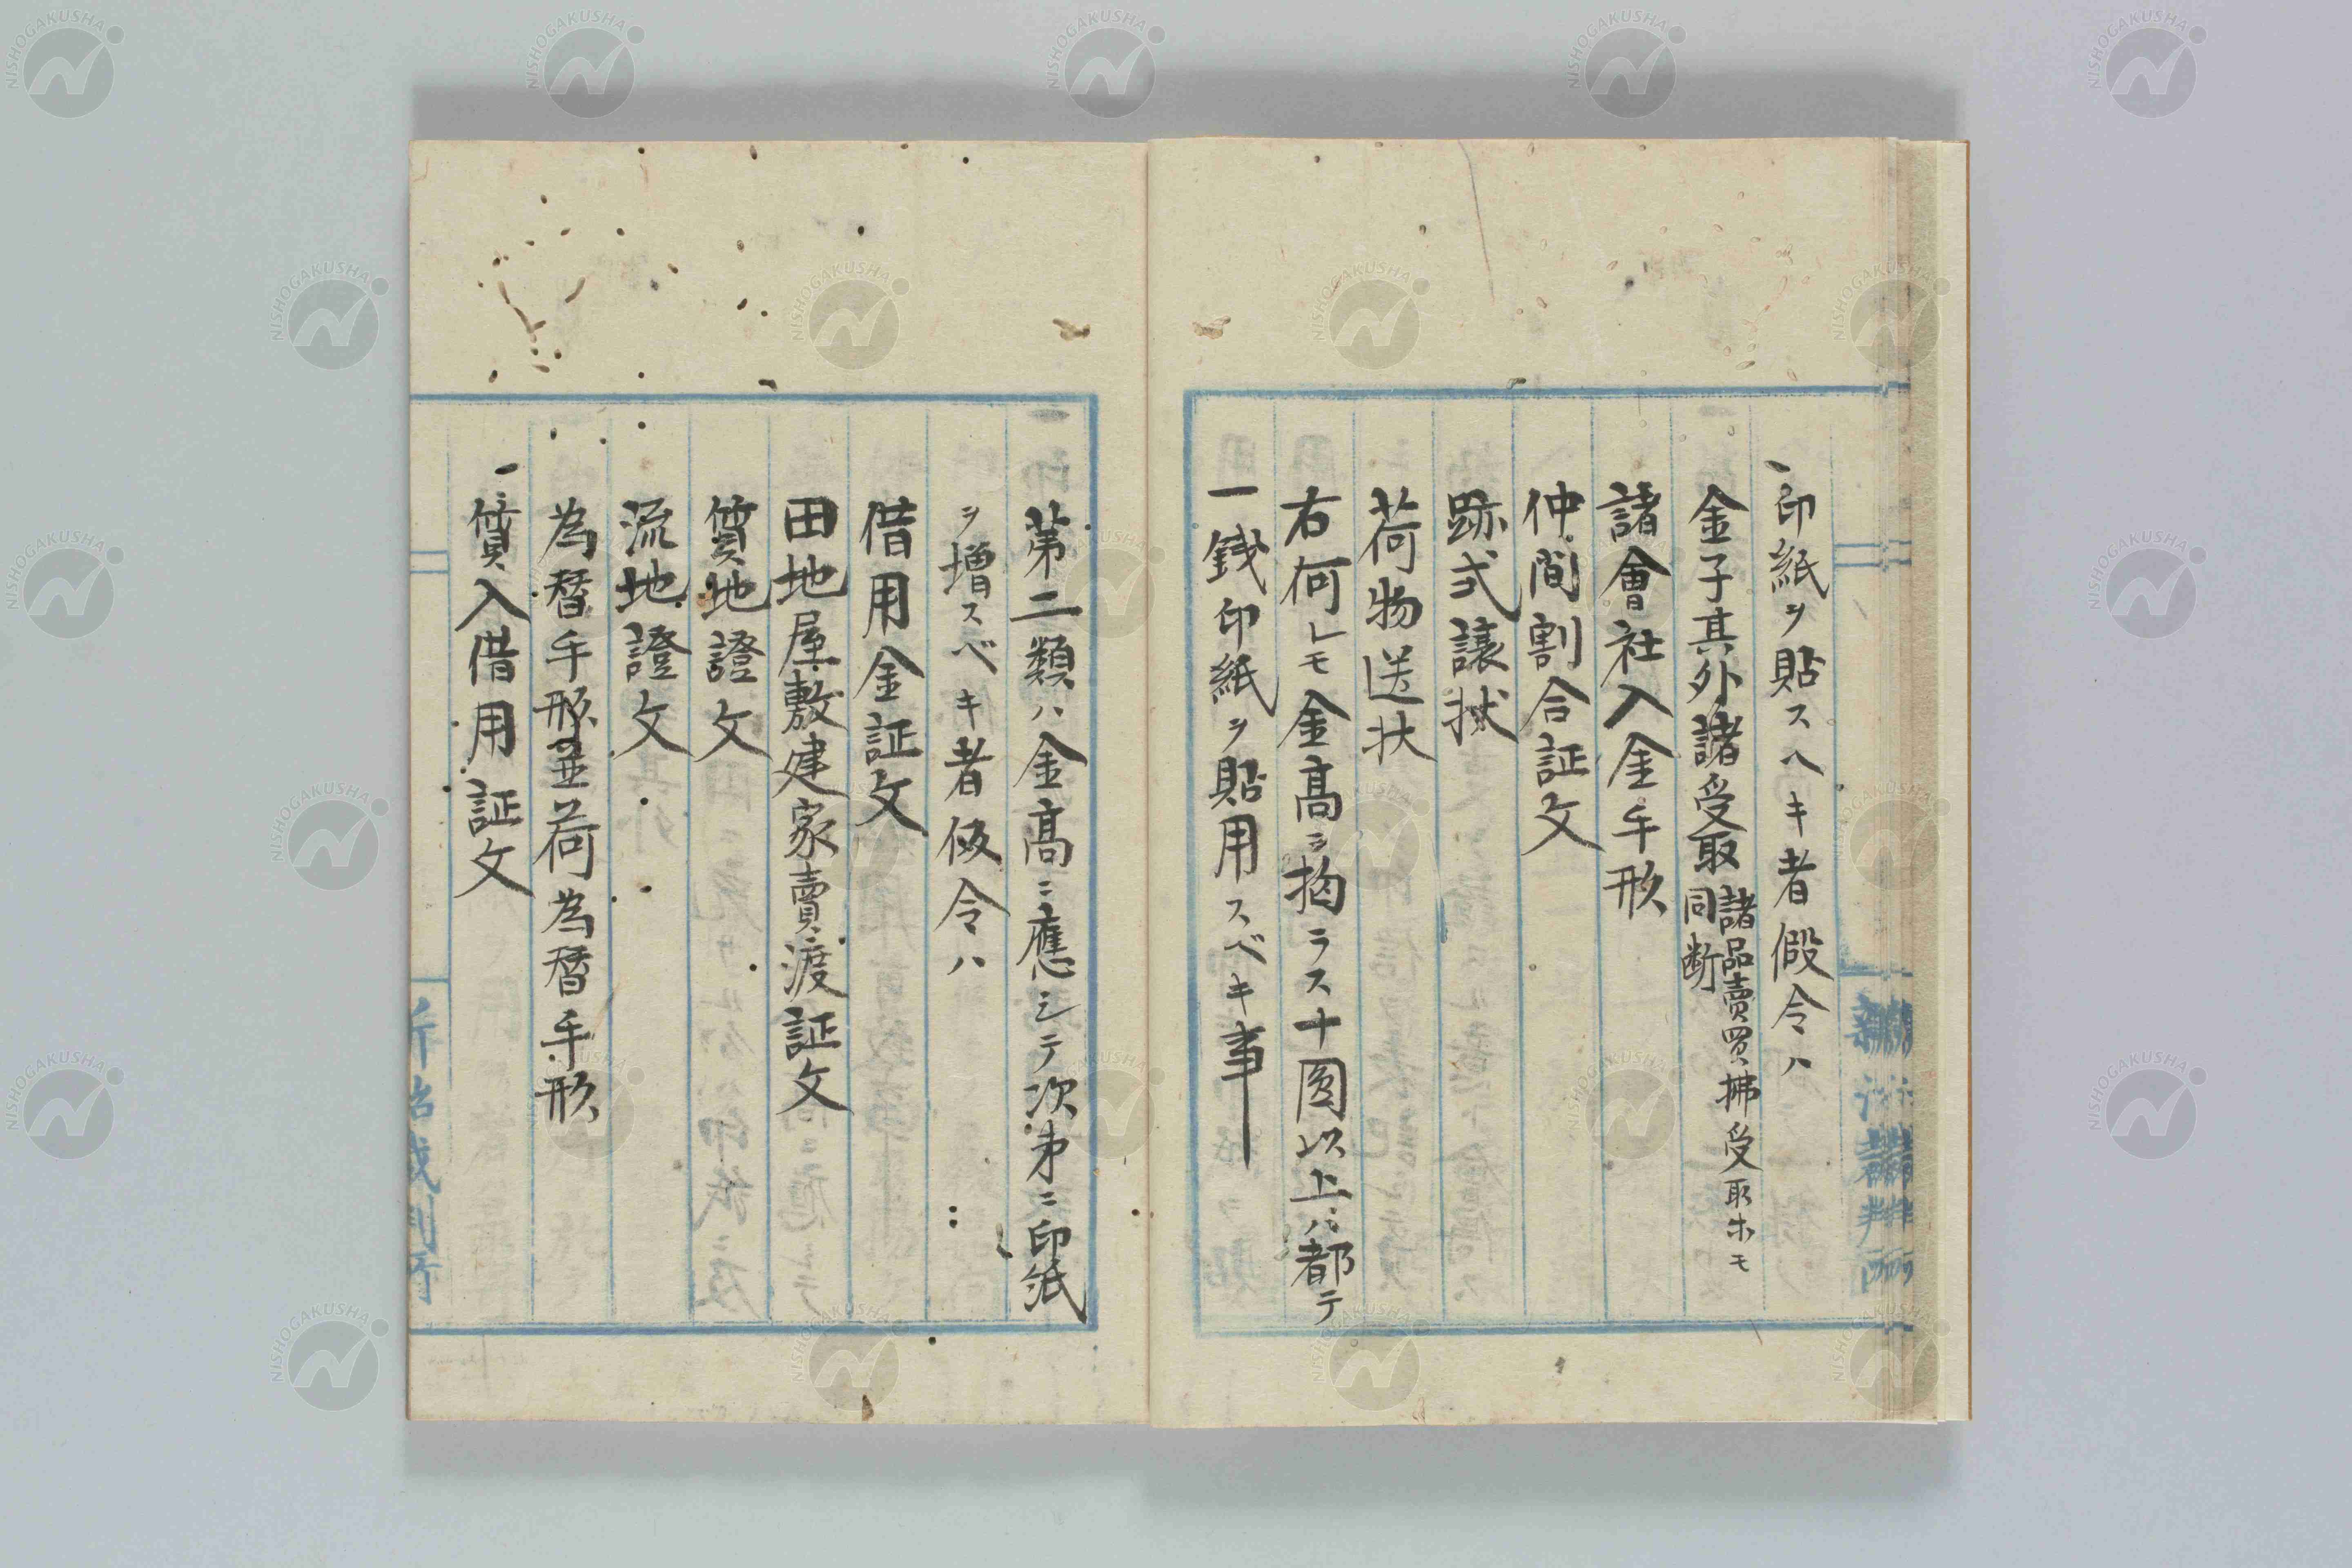 一印紙ヲ貼スヘキ者假令ハ
金子其外諸受取諸品賣買拂受取ホモ同断
諸會社入金手形
仲間割合証文
跡式譲状
荷物送状
右何レモ金高ニ拘ラス十圓以上ハ都テ
一銭印紙ヲ貼用スベキ事
第二類ハ金高ニ應シテ次第ニ印紙
ヲ増スベキ者仮令ハ
借用金証文
田地屋敷建家賣渡証文
質地證文
流地證文
為替手形並荷為替手形
一質入借用証文
新治裁判所
NISHOGAKUSHA